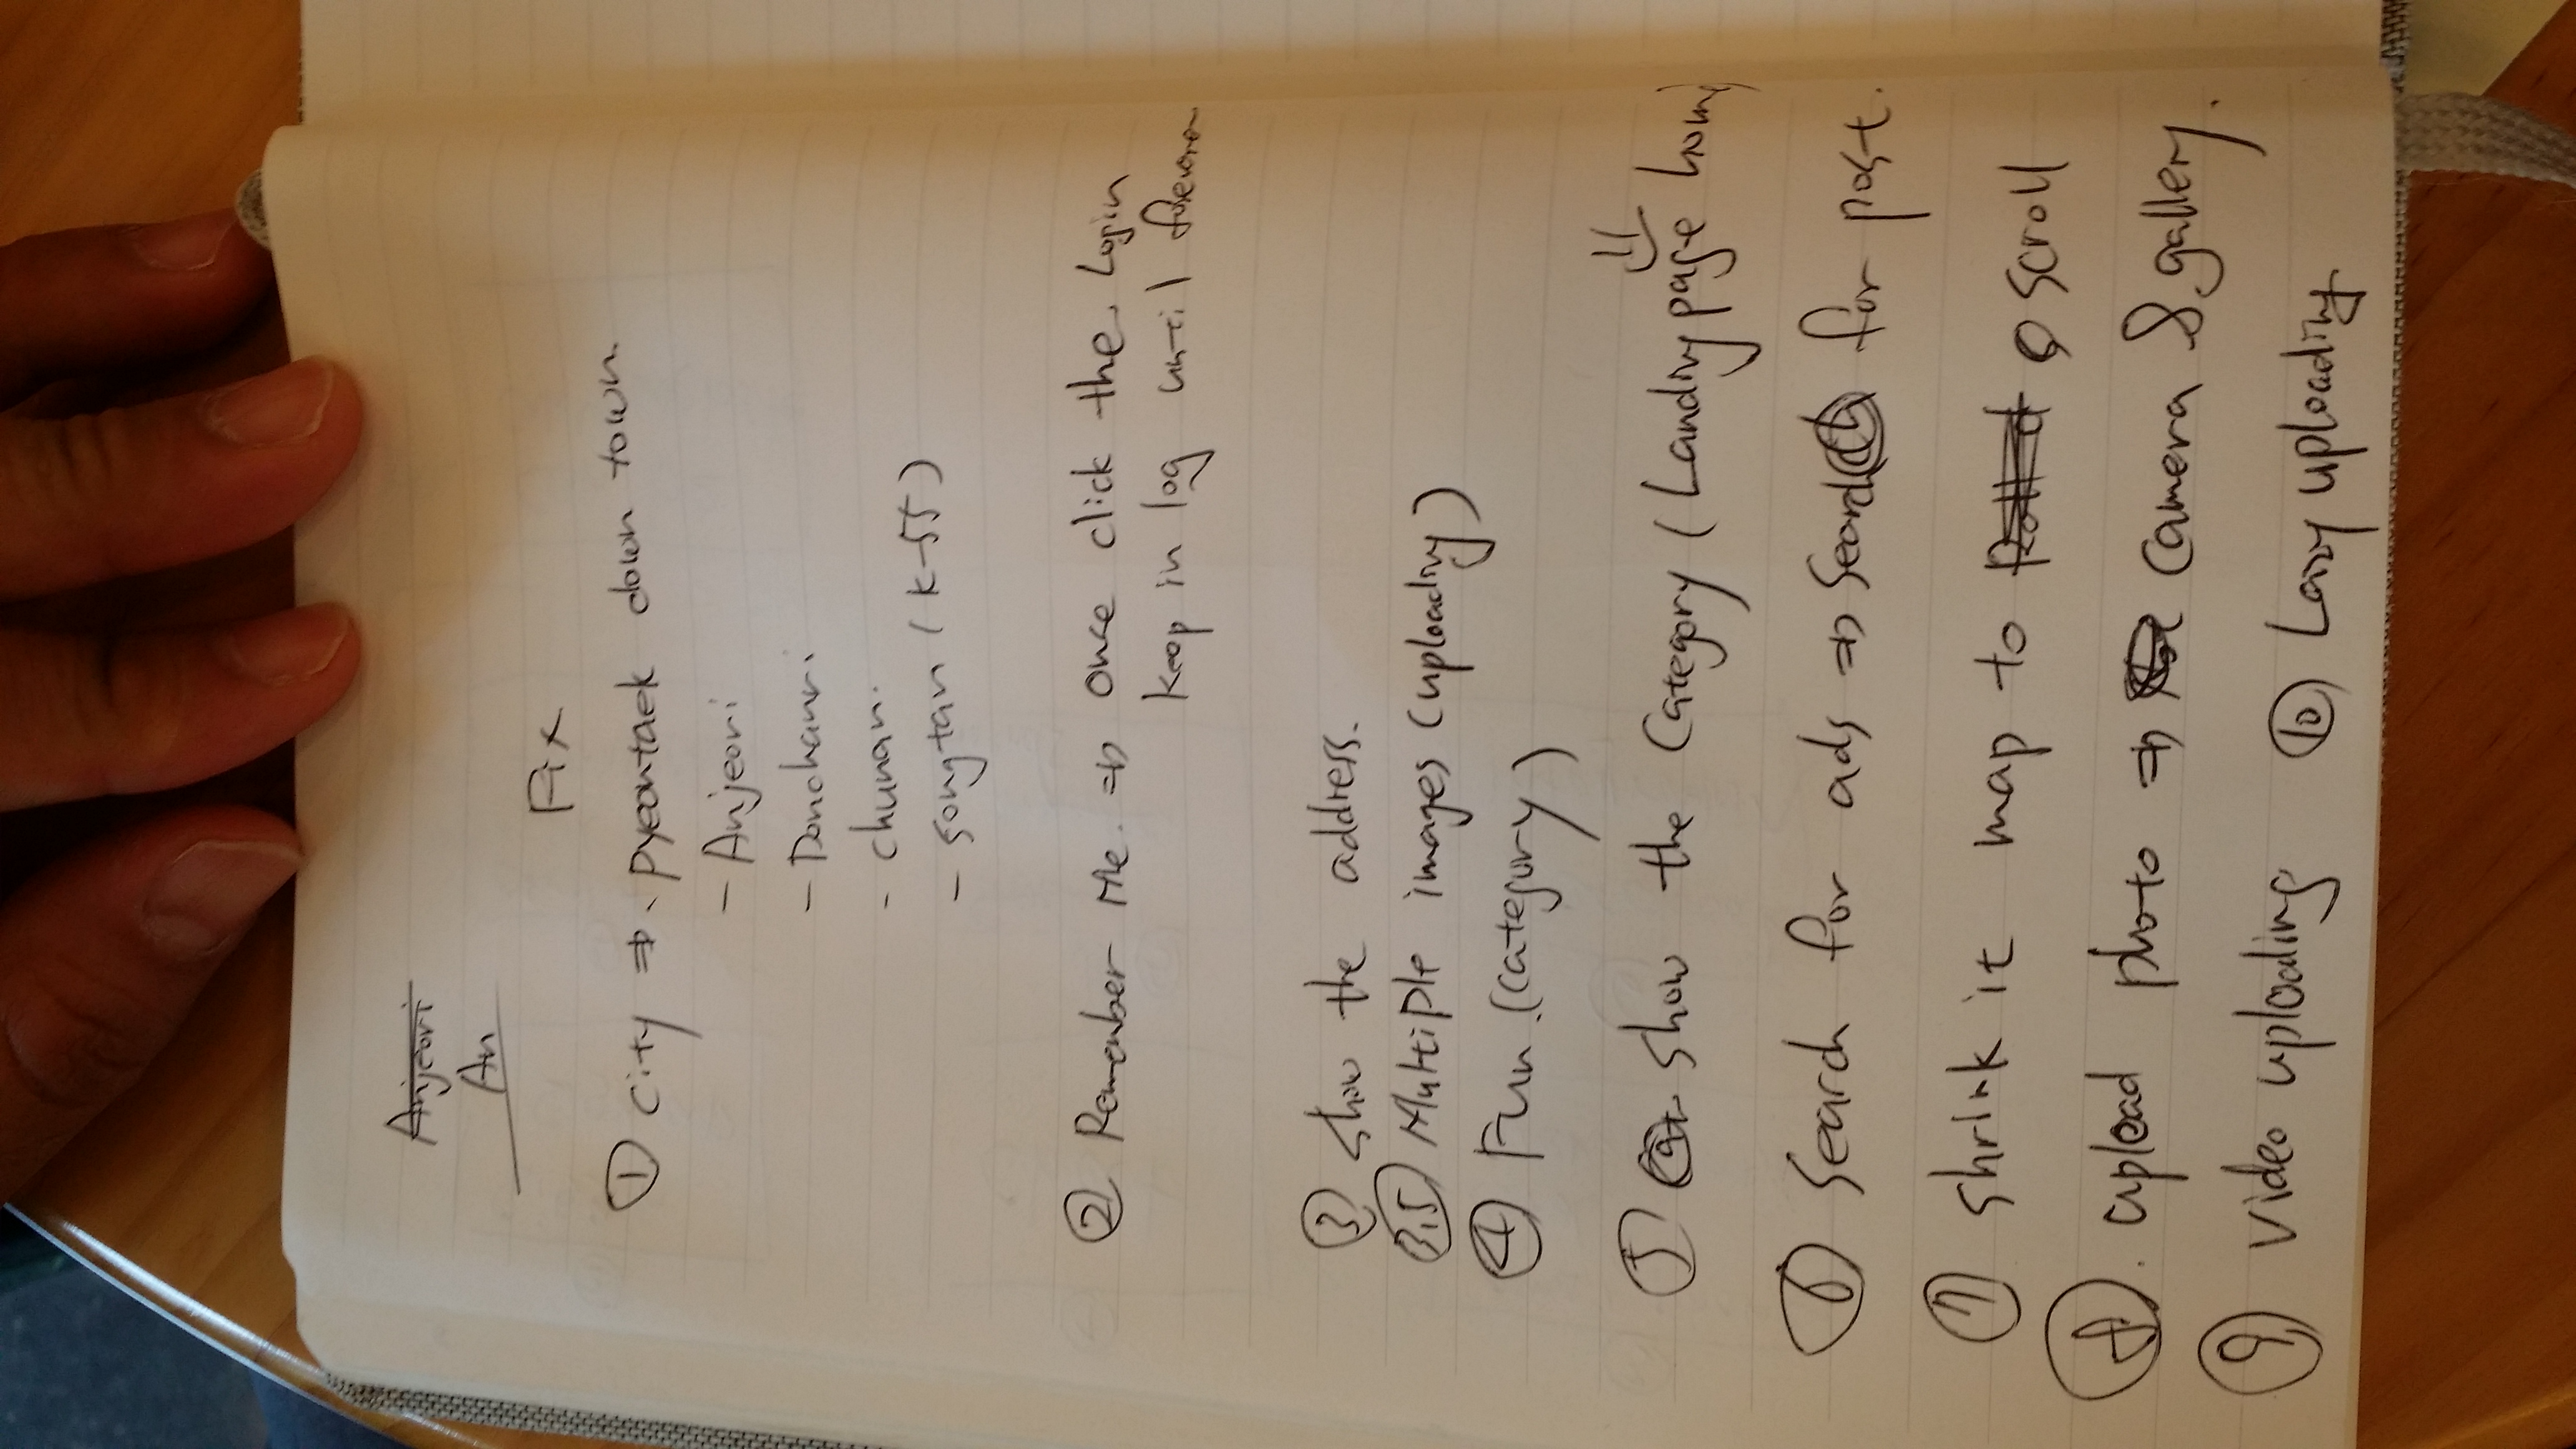 Anjeori
An
Fix
① city ⇒ . pyeontaek down town.
- Anjeori
- Donchanri
- chunan.
- songtan (K-55)
② Remember Me. ⇒ once click the Login
keep in log until forever
③ show the address.
3.5 Multiple images (uploading)
④ Fun. (category)
⑤ show the Category (Landing page home)
⑥ Search for ads ⇒ Search for post.
⑦ shrink it map to scroll
⑧. upload photo ⇒ camera & gallery.
⑨ video uploading ⑩ Lazy uploading